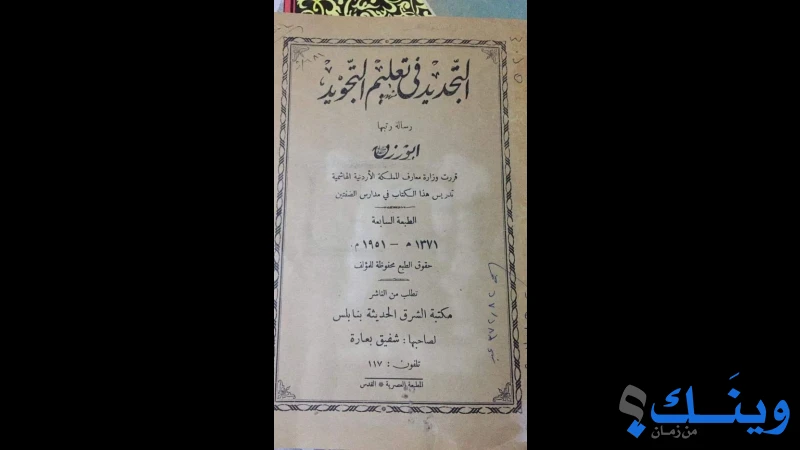 التجديد في تعليم التجويد
رسالة رتبها
ابورزق
قررت وزارة معارف المملكة الأردنية الهاشمية
تدريس هذا الكتاب في مدارس الضفتين
الطبعة السابعة
١٣٧١ ه – ١٩٥١ م.
حقوق الطبع محفوظة للمؤلف
تطلب من الناشر
مكتبة الشرق الحديثة بنابلس
لصاحبها: شفيق بعارة
تلفون: ١١٧
المطبعة العصرية * القدس
وينَـك؟
من زمـان